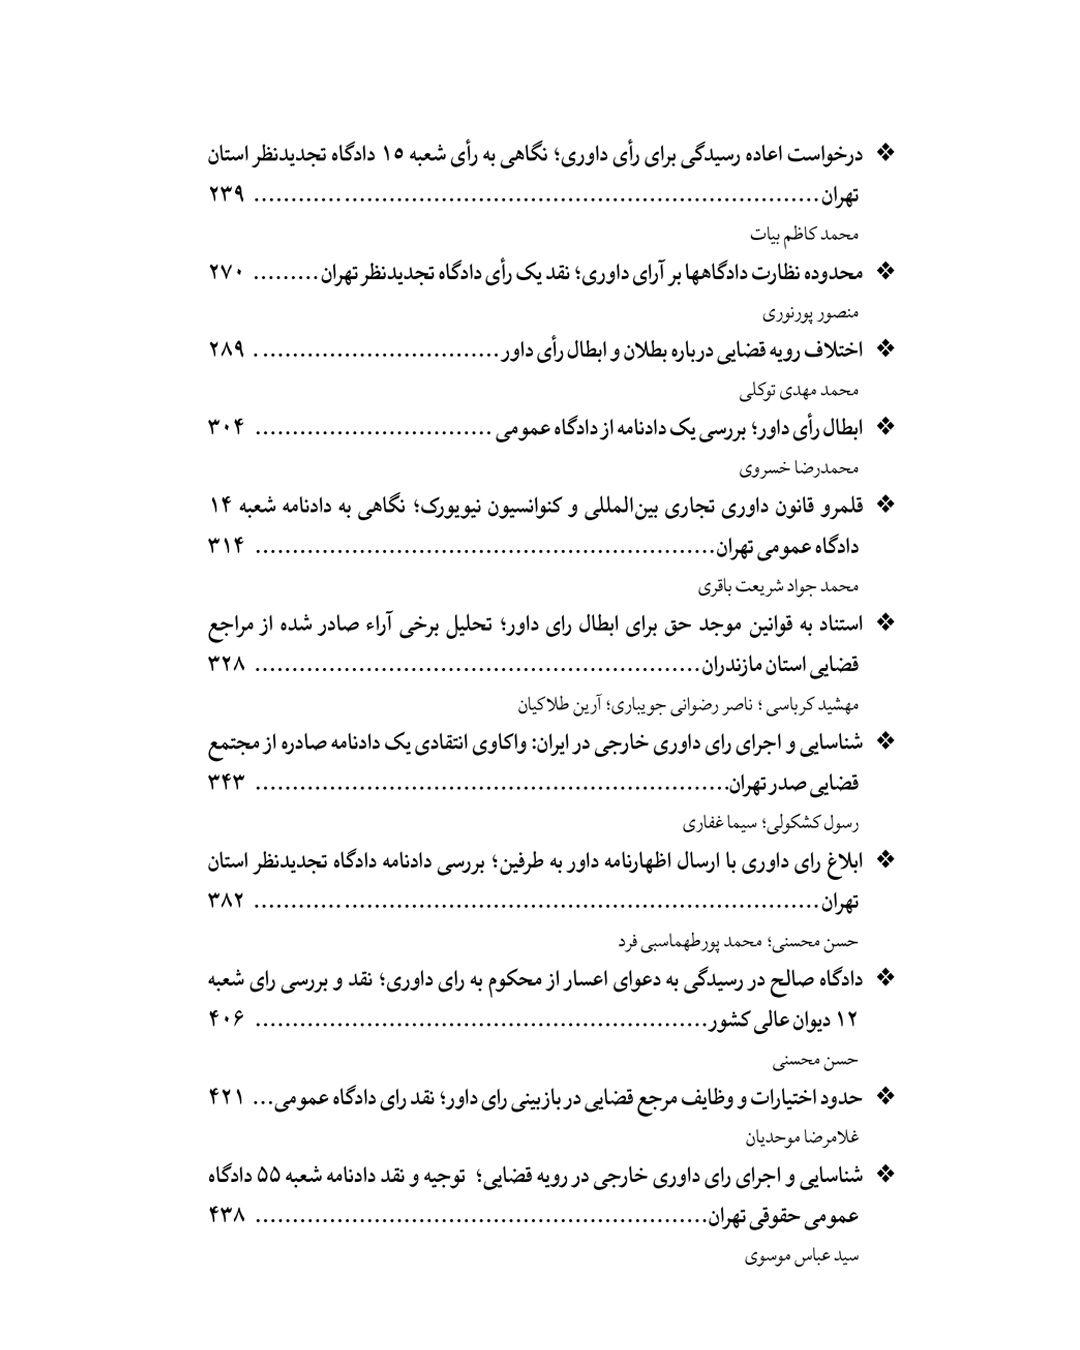 ❖ درخواست اعاده رسیدگی برای رأی داوری؛ نگاهی به رأی شعبه ۱۵ دادگاه تجدیدنظر استان
تهران................................................................................ ۲۳۹
محمد کاظم بیات
❖ محدوده نظارت دادگاهها بر آرای داوری؛ نقد یک رأی دادگاه تجدیدنظر تهران......... ۲۷۰
منصور پورنوری
❖ اختلاف رویه قضایی درباره بطلان و ابطال رأی داور................................. ۲۸۹
محمد مهدی توکلی
❖ ابطال رأی داور؛ بررسی یک دادنامه از دادگاه عمومی ................................ ۳۰۴
محمدرضا خسروی
❖ قلمرو قانون داوری تجاری بین‌المللی و کنوانسیون نیویورک؛ نگاهی به دادنامه شعبه ۱۴
دادگاه عمومی تهران.............................................................. ۳۱۴
محمد جواد شریعت باقری
❖ استناد به قوانین موجد حق برای ابطال رای داور؛ تحلیل برخی آراء صادر شده از مراجع
قضایی استان مازندران............................................................ ۳۲۸
مهشید کرباسی ؛ ناصر رضوانی جویباری؛ آرین طلاکیان
❖ شناسایی و اجرای رای داوری خارجی در ایران: واکاوی انتقادی یک دادنامه صادره از مجتمع
قضایی صدر تهران................................................................ ۳۴۳
رسول کشکولی؛ سیما غفاری
❖ ابلاغ رای داوری با ارسال اظهارنامه داور به طرفین؛ بررسی دادنامه دادگاه تجدیدنظر استان
تهران................................................................................ ۳۸۲
حسن محسنی؛ محمد پورطهماسبی فرد
❖ دادگاه صالح در رسیدگی به دعوای اعسار از محکوم به رای داوری؛ نقد و بررسی رای شعبه
۱۲ دیوان عالی کشور............................................................. ۴۰۶
حسن محسنی
❖ حدود اختیارات و وظایف مرجع قضایی در بازبینی رای داور؛ نقد رای دادگاه عمومی... ۴۲۱
غلامرضا موحدیان
❖ شناسایی و اجرای رای داوری خارجی در رویه قضایی؛ توجیه و نقد دادنامه شعبه ۵۵ دادگاه
عمومی حقوقی تهران............................................................. ۴۳۸
سید عباس موسوی